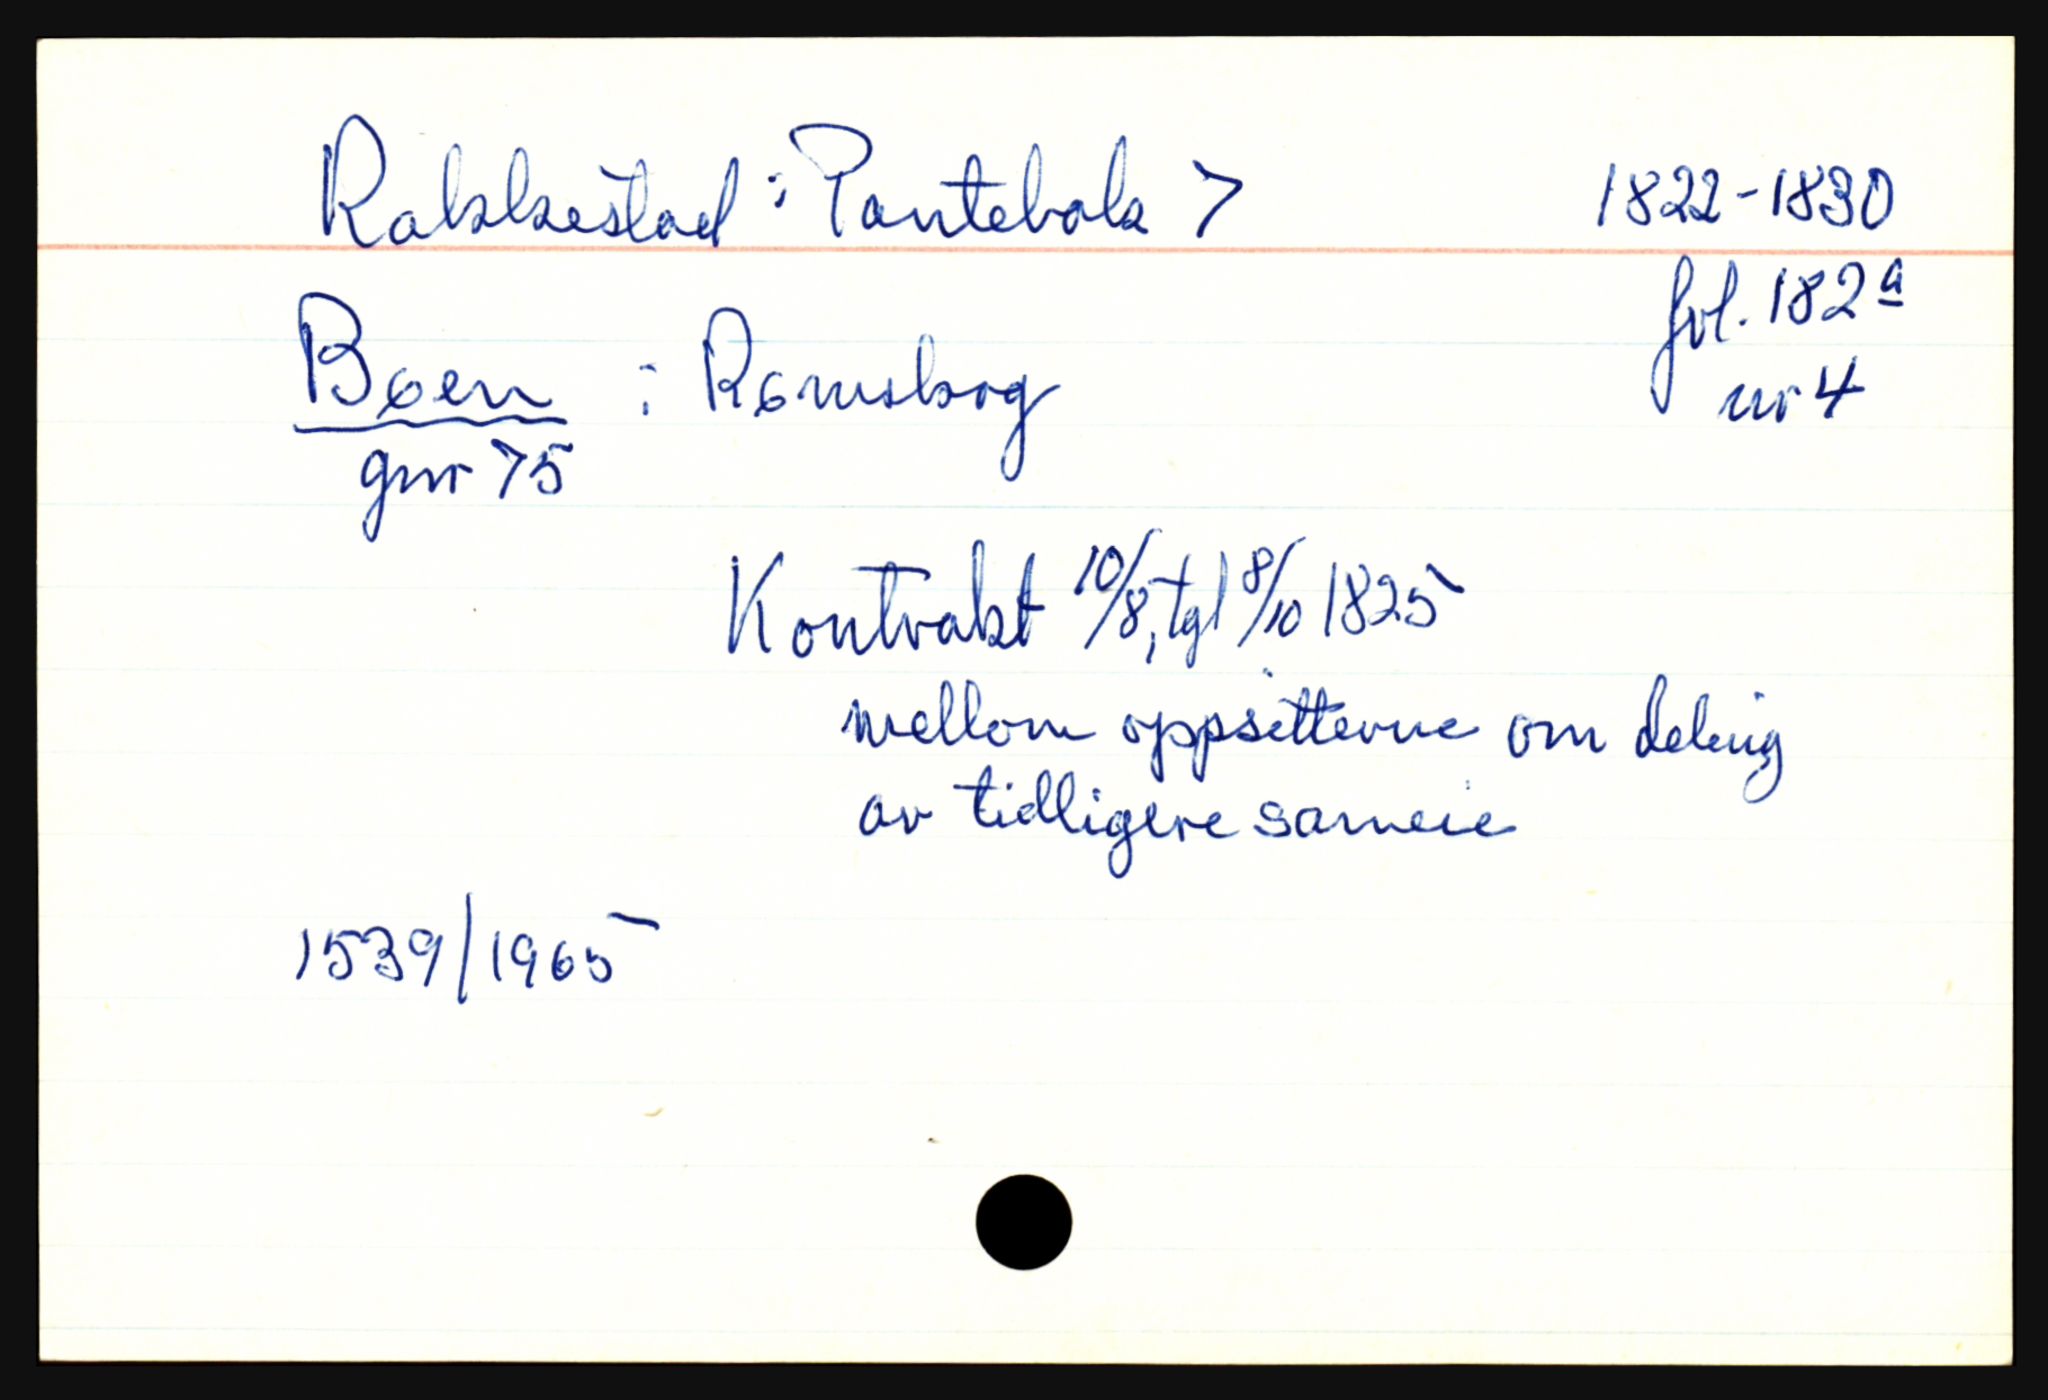 Rakkestad: Pantebok 7 1822-1830
fol. 182a
Bøen : Rømskog
nr 4
gnr 75
Kontrakt 10/8, tgl 8/10 1825
mellom oppsitterne om deling
av tidligere sameie
1539/1965